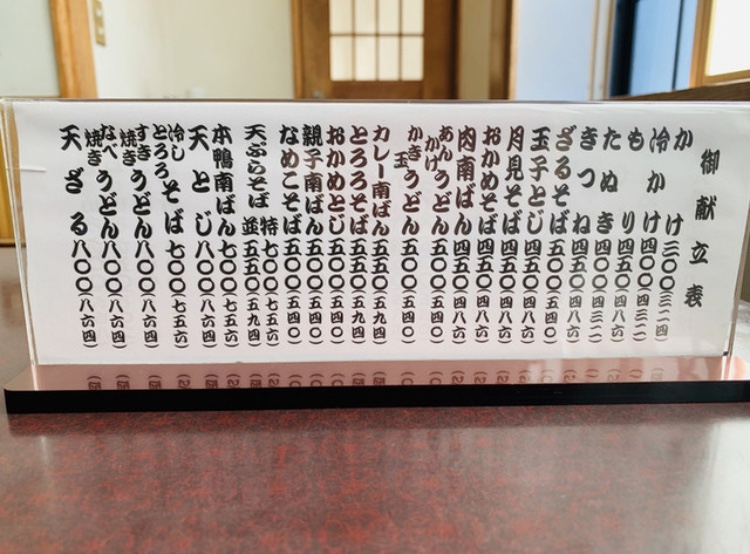 御献立表
かけ 三〇〇(三二四)
冷かけ 四〇〇(四三二)
もり 四五〇(四八六)
たぬき 四〇〇(四三二)
きつね 四五〇(四八六)
ざるそば 五〇〇(五四〇)
玉子とじ 四五〇(四八六)
月見そば 四五〇(四八六)
おかめそば 四五〇(四八六)
肉南ばん 四五〇(四八六)
あんかけうどん
かき玉うどん 五〇〇(五四〇)
カレー南ばん 五五〇(五九四)
とろろそば 五五〇(五九四)
おかめとじ 五〇〇(五四〇)
親子南ばん 五〇〇(五四〇)
なめこそば 五〇〇(五四〇)
天ぷらそば 特 七〇〇(七五六)
並 五五〇(五九四)
本鴨南ばん 七〇〇(七五六)
天とじ 八〇〇(八六四)
冷しとろろそば 七〇〇(七五六)
すき焼きうどん 八〇〇(八六四)
なべ焼きうどん 八〇〇(八六四)
天ざる 八〇〇(八六四)